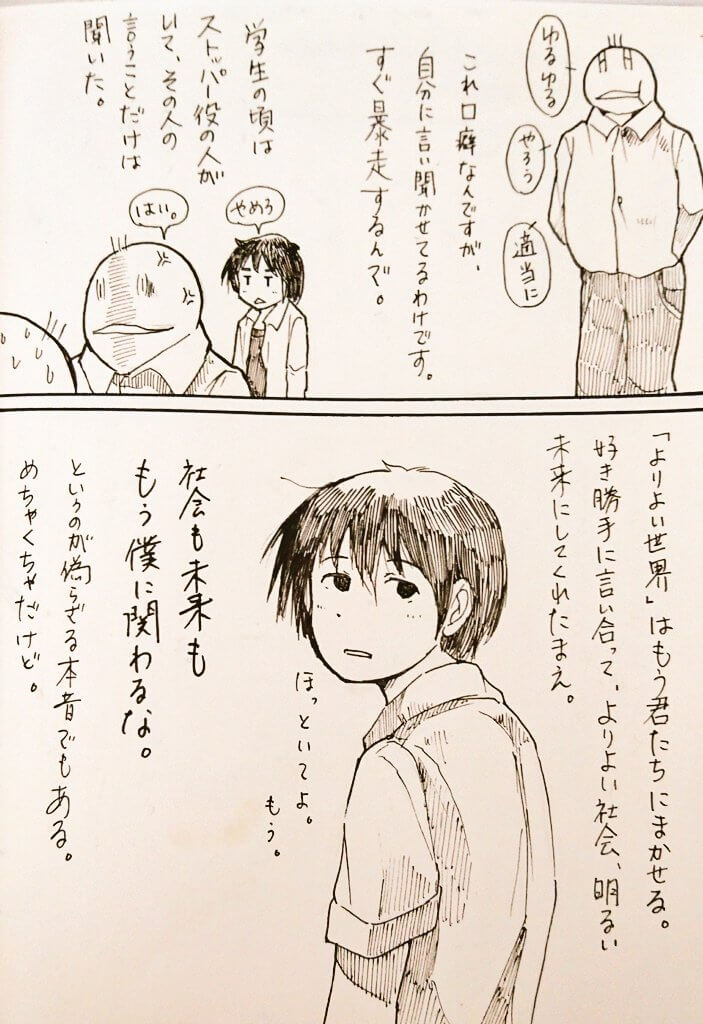 ゆるゆる
やろう
適当に
これ口癖なんですが、
自分に言い聞かせてるわけです。
すぐ暴走するんで。
学生の頃は
ストッパー役の人が
いて、その人の
言うことだけは
聞いた。
やめろ
はい。
「よりよい世界」はもう君たちにまかせる。
好き勝手に言い合って、よりよい社会、明るい
未来にしてくれたまえ。
ほっといてよ。
もう。
社会も未来も
もう僕に関わるな。
というのが偽らざる本音でもある。
めちゃくちゃだけど。